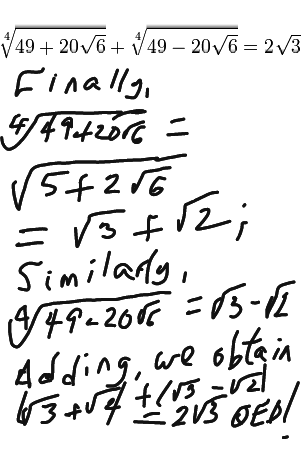 ∜(49 + 20√6) + ∜(49 − 20√6) = 2√3
Finally,
∜(49+20√6) =
√(5+2√6)
= √3 + √2;
Similarly,
∜(49-20√6) = √3-√2
Adding, we obtain
(√3+√4) + (√3-√2) = 2√3 QED!